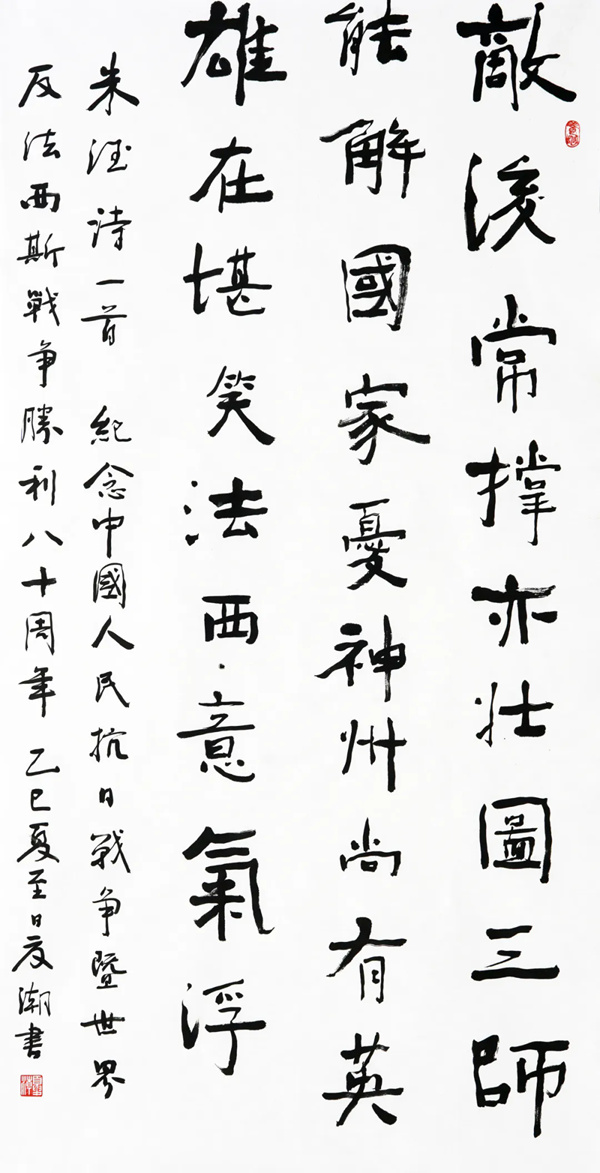 敵後常撐亦壯圖三師
能解國家憂神州尚有英
雄在堪笑法西意氣浮
朱德詩一首 紀念中國人民抗日戰争暨世界
反法西斯戰争勝利八十周年 乙巳夏至日潮書